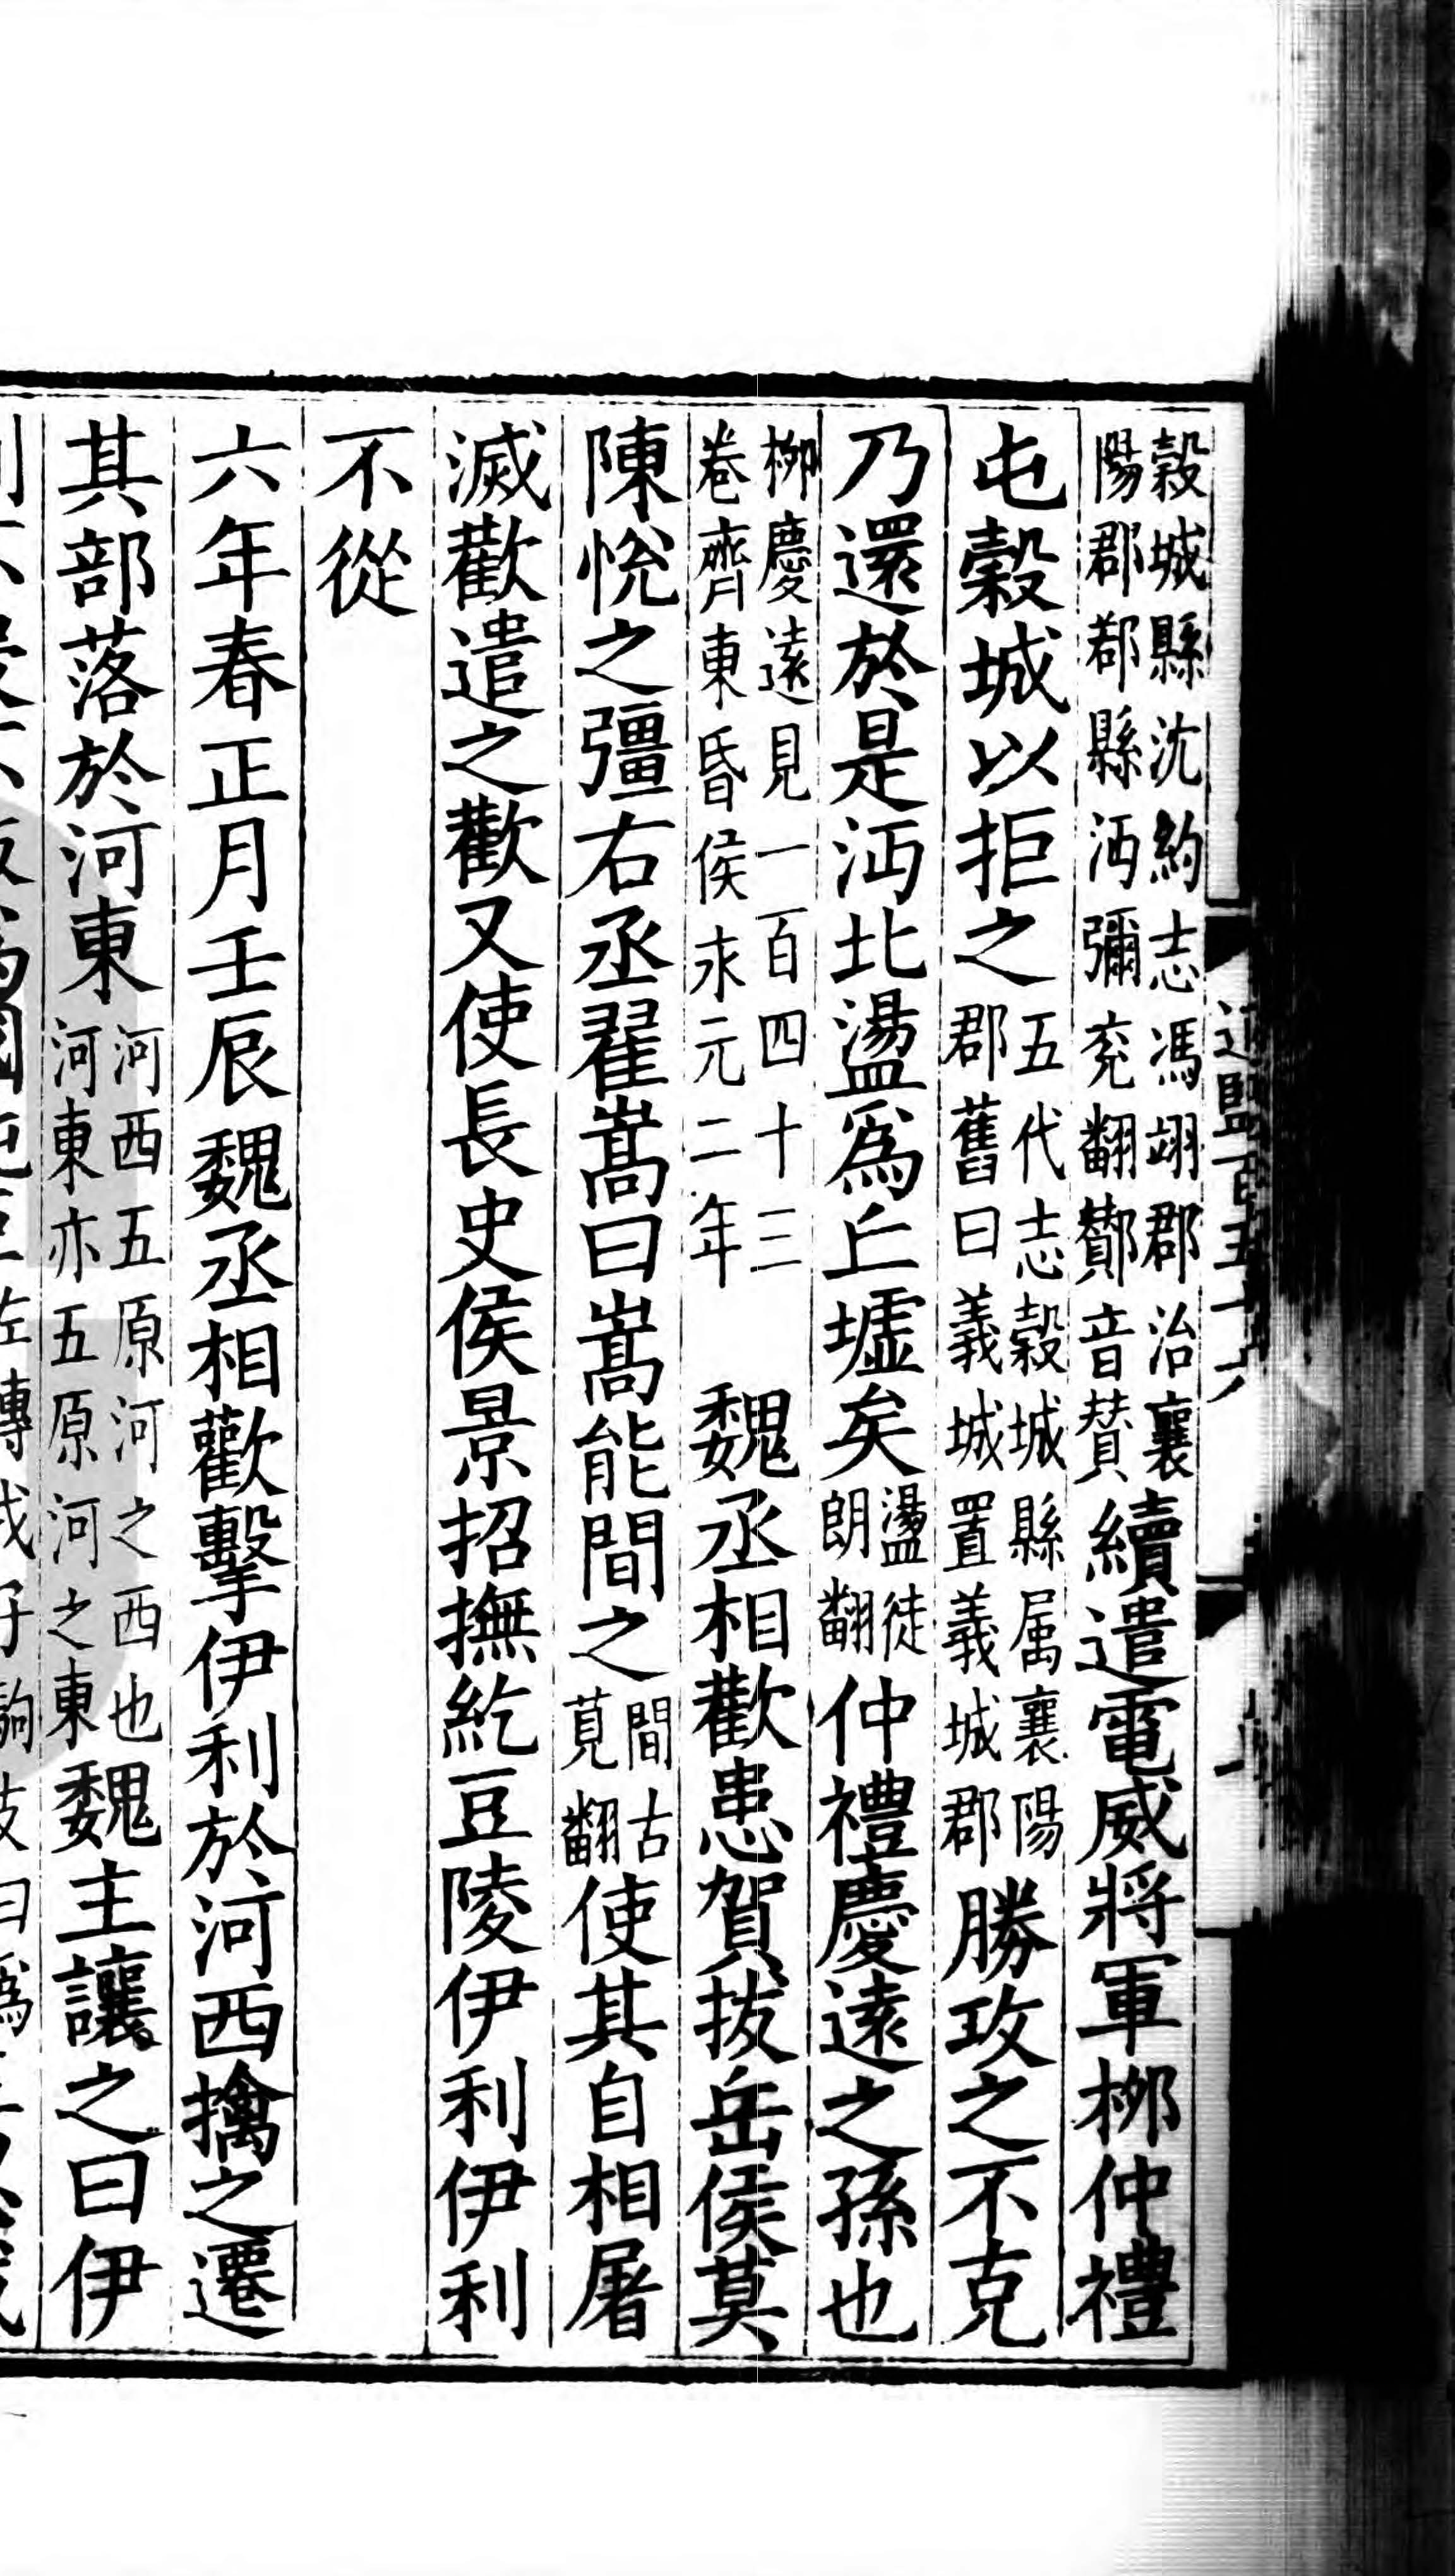 穀城縣沈約志馮翊郡治襄
陽郡鄀縣沔彌兖翻酇音賛
續遣電威將軍桞仲禮
屯穀城以拒之
五代志穀城縣属襄陽
郡舊曰義城置義城郡
勝攻之不克
乃還於是沔北盪爲丘墟矣
盪徒
朗翻
仲禮慶遠之孫也
桞慶遠見一百四十三
卷齊東昏侯永元二年
魏丞相歡患賀拔岳侯莫
陳悅之彊右丞翟嵩曰嵩能間之
間古
莧翻
使其自相屠
滅歡遣之歡又使長史侯景招撫紇豆陵伊利伊利
不從
六年春正月壬辰魏丞相歡擊伊利於河西擒之遷
其部落於河東
河西五原河之西也
河東亦五原河之東
魏主讓之曰伊